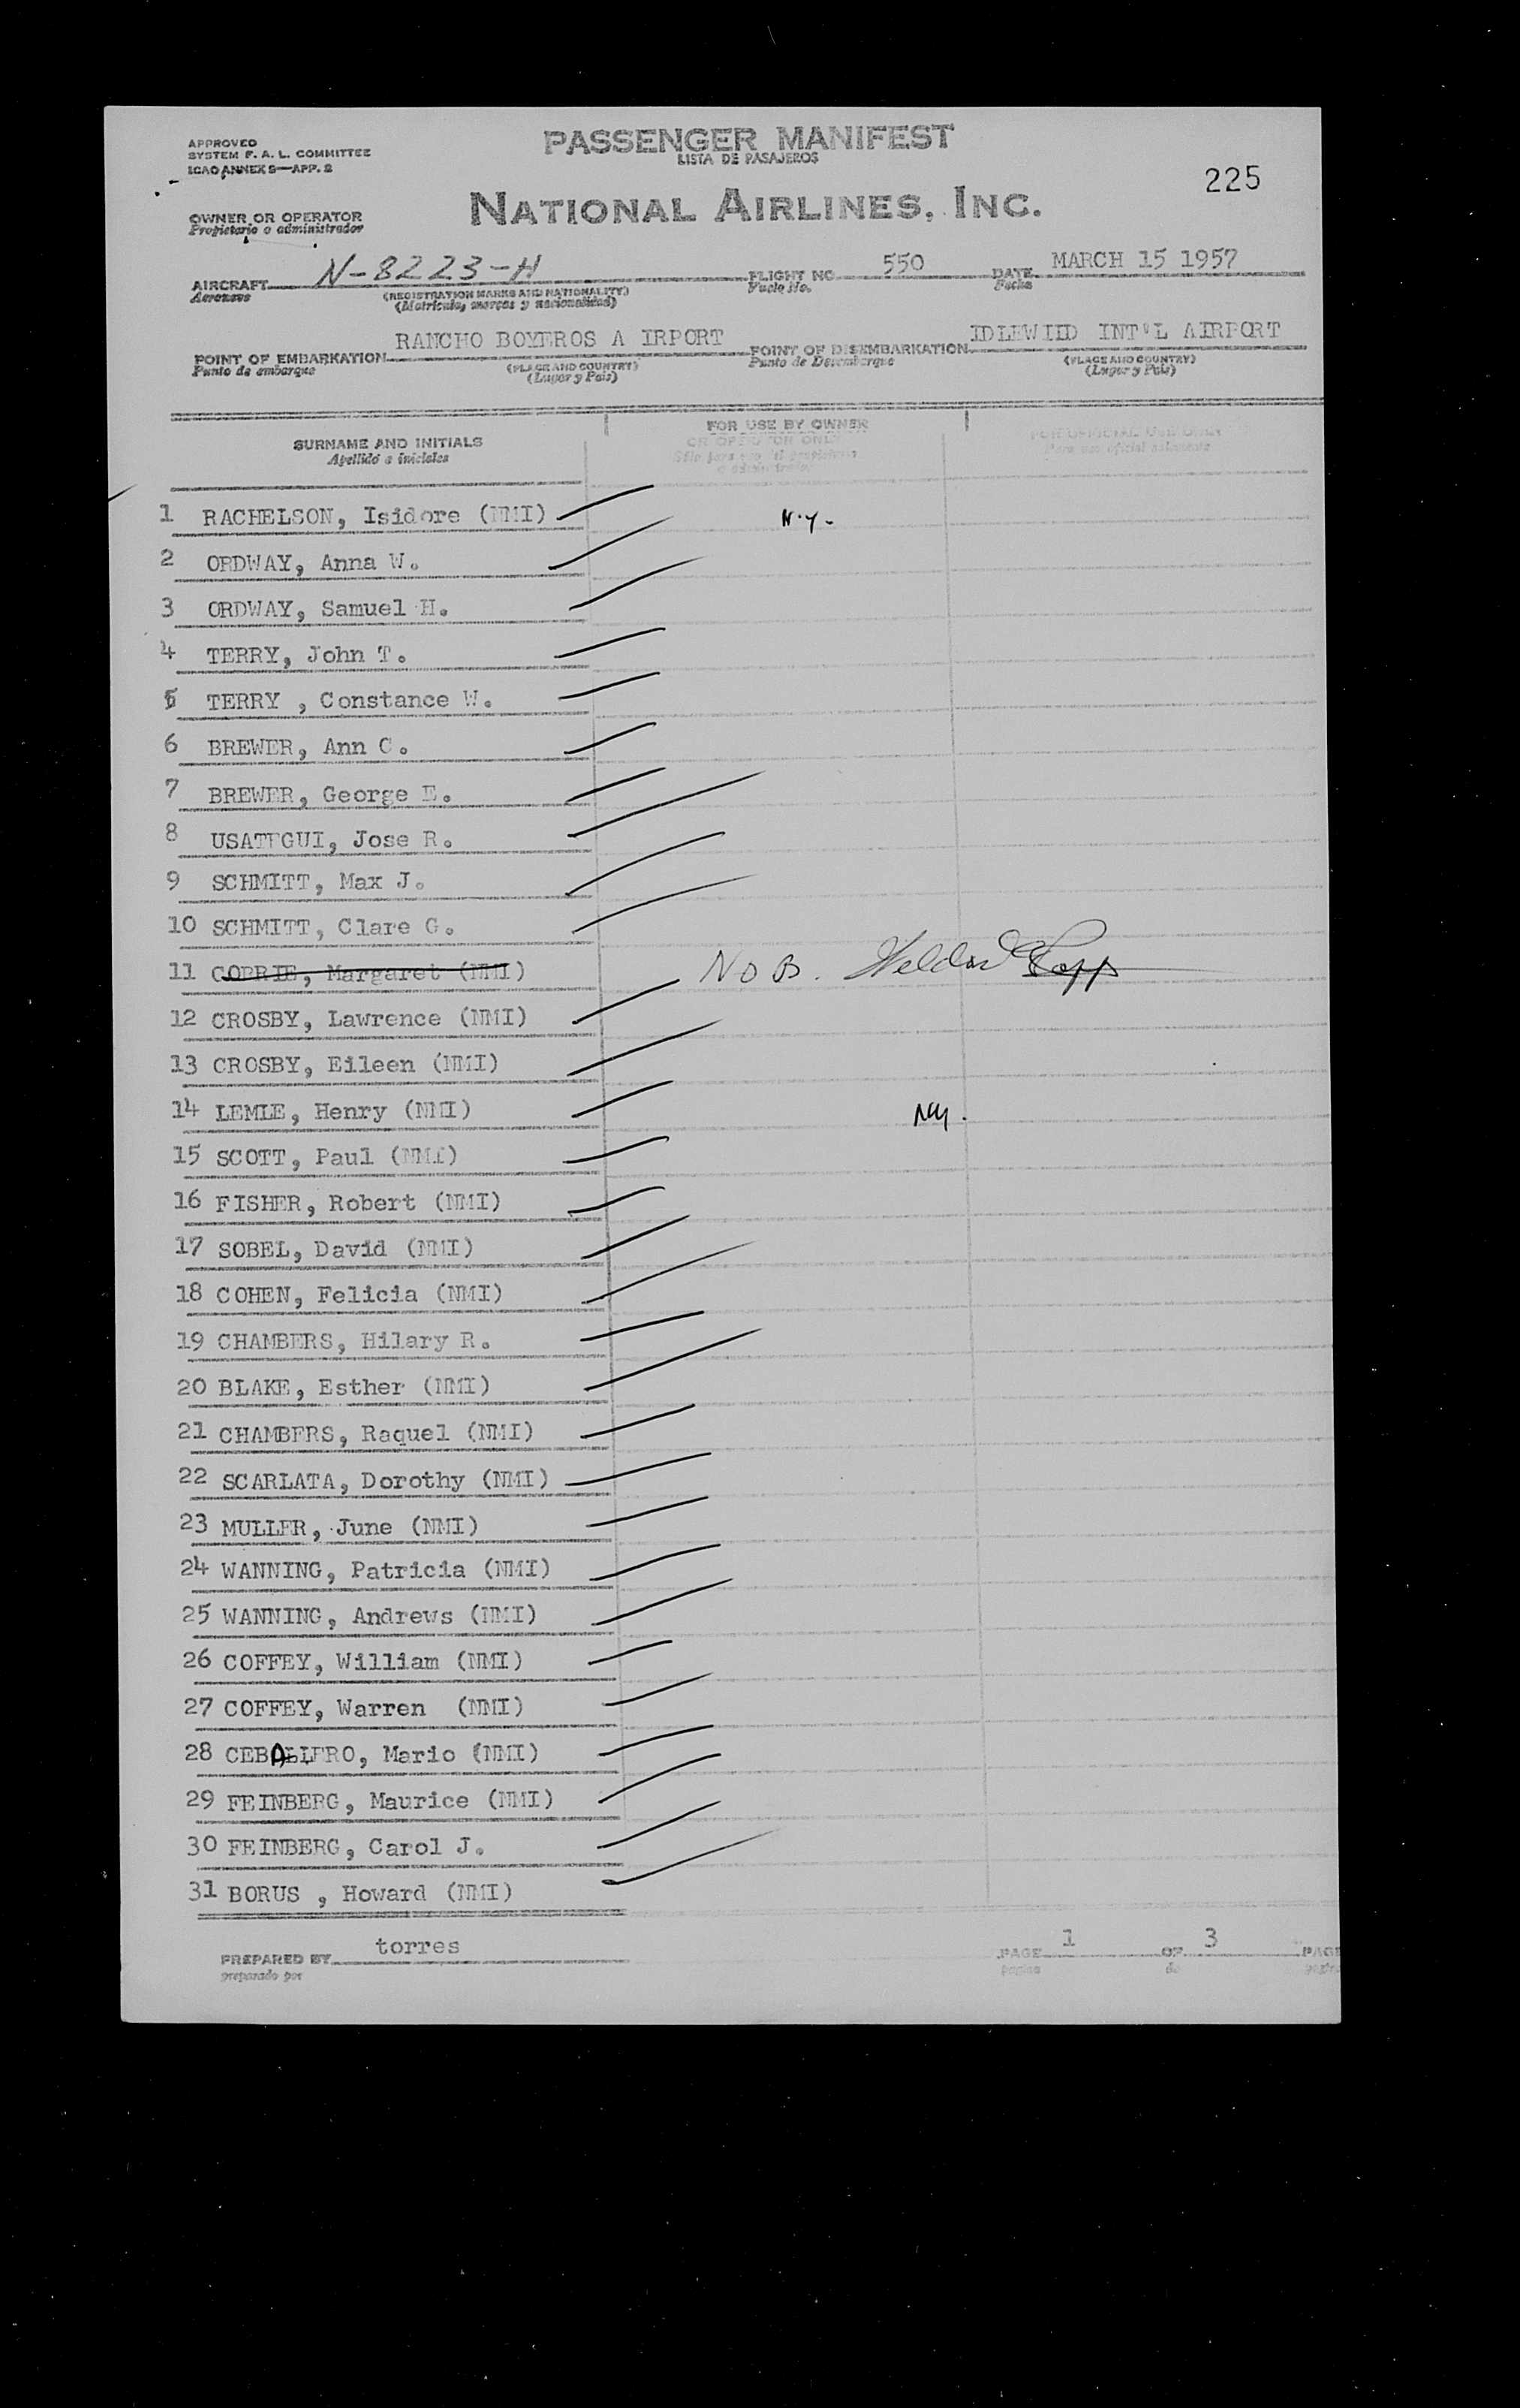 APPROVED
SYSTEM F. A. L. COMMITTEE
ICAO ANNEX 9—APP. 2
PASSENGER MANIFEST
LISTA DE PASAJEROS
225
NATIONAL AIRLINES, INC.
OWNER OR OPERATOR
Propietario o administrador
AIRCRAFT N-8223-H FLIGHT NO. 550 DATE MARCH 15 1957
Aeronave (REGISTRATION MARKS AND NATIONALITY) Vuelo No. Fecha
(Matricula, marcas y nacionalidad)
POINT OF EMBARKATION RANCHO BOYEROS A IRPORT POINT OF DISEMBARKATION IDLEWILD INT'L AIRPORT
Punto de embarque (PLACE AND COUNTRY) Punto de Desembarque (PLACE AND COUNTRY)
(Lugar y Pais) (Lugar y Pais)
SURNAME AND INITIALS FOR USE BY OWNER FOR OFFICIAL USE ONLY
Apellido e iniciales OR OPERATOR ONLY Para uso oficial solamente
1 RACHELSON, Isidore (NMI) N.Y.
2 ORDWAY, Anna W.
3 ORDWAY, Samuel H.
4 TERRY, John T.
5 TERRY , Constance W.
6 BREWER, Ann C.
7 BREWER, George E.
8 USATEGUI, Jose R.
9 SCHMITT, Max J.
10 SCHMITT, Clare G.
11 CORRIE, Margaret (NMI) NOB.
12 CROSBY, Lawrence (NMI)
13 CROSBY, Eileen (NMI)
14 LEMLE, Henry (NMI) NY.
15 SCOTT, Paul (NMI)
16 FISHER, Robert (NMI)
17 SOBEL, David (NMI)
18 COHEN, Felicia (NMI)
19 CHAMBERS, Hilary R.
20 BLAKE, Esther (NMI)
21 CHAMBERS, Raquel (NMI)
22 SCARLATA, Dorothy (NMI)
23 MULLER, June (NMI)
24 WANNING, Patricia (NMI)
25 WANNING, Andrews (NMI)
26 COFFEY, William (NMI)
27 COFFEY, Warren (NMI)
28 CEBALLERO, Mario (NMI)
29 FEINBERG, Maurice (NMI)
30 FEINBERG, Carol J.
31 BORUS , Howard (NMI)
PREPARED BY torres PAGE 1 OF 3 PAGE
preparado por pagina de